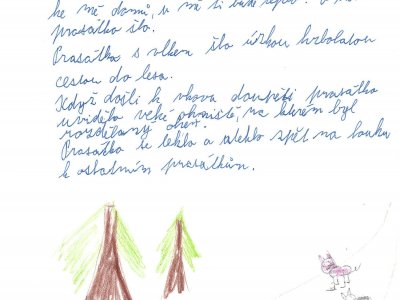 ke mě domů, u mě ti bude lépe. A tak
prasátko šlo.
Prasátko s vlkem šlo úzkou hrbolatou
cestou do lesa.
Když došli k vlkova doupěti prasátko
uvidělo velké ohniště, na kterém byl
rozdělaný oheň.
Prasátko se leklo a uteklo zpět na louku
k ostatním prasátkům.